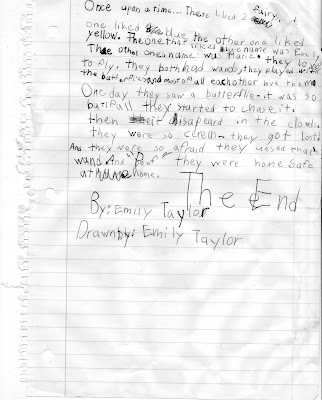 Once upon a time... There liked 2 fairy.
one liked blue the other one liked
yellow. The one that liked blue name was Emily
The other one name was Marie. they lo
to fly. they both had wands, they played with
the butterflies and most of all each other
One day they saw a butterflie. it was so
butifall they started to chase it.
then it disapeard in the clouds.
they were so cereas they got lost
And they were so afraid they uesed thar
wand. And poof they were home safe
at home.
The End
By: Emily Taylor
Drawn by: Emily Taylor